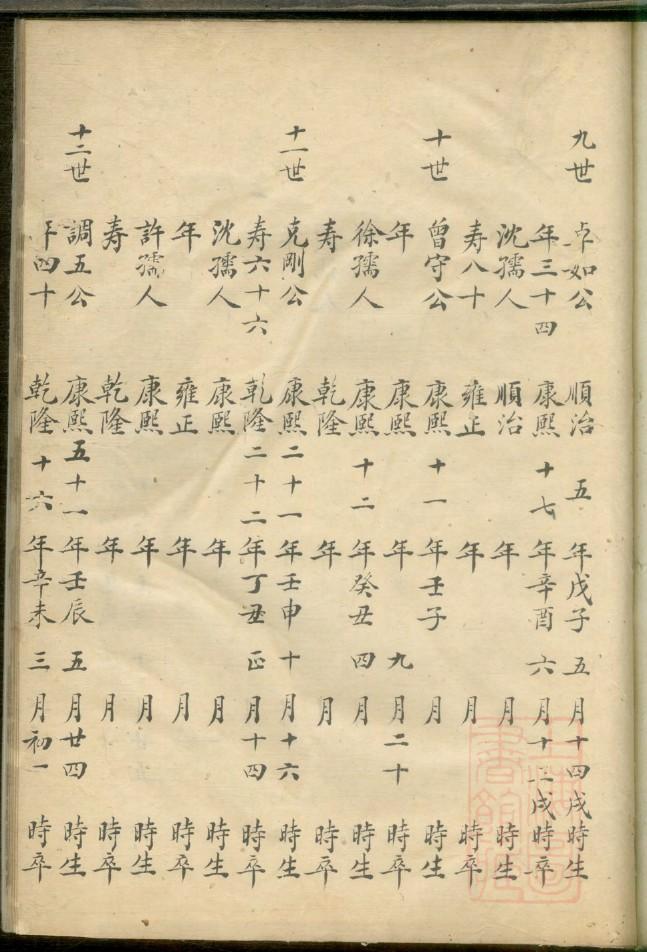 九世 卓如公 順治五年戊子五月十四戌時生
年三十四 康熙十七年辛酉六月十二戌時卒
沈孺人 順治年月時生
寿八十 雍正年月時卒
十世 曾守公 康熙十一年壬子月時生
年 康熙年九月二十時卒
徐孺人 康熙十二年癸丑四月時生
寿 乾隆年月時卒
十一世 克剛公 康熙二十一年壬申十月十六時生
寿六十六 乾隆二十二年丁丑正月十四時卒
沈孺人 康熙年月時生
年 雍正年月時卒
許孺人 康熙年月時生
寿 乾隆年月時卒
十二世 調五公 康熙五十一年壬辰五月廿四時生
年四十 乾隆十六年辛未三月初一時卒